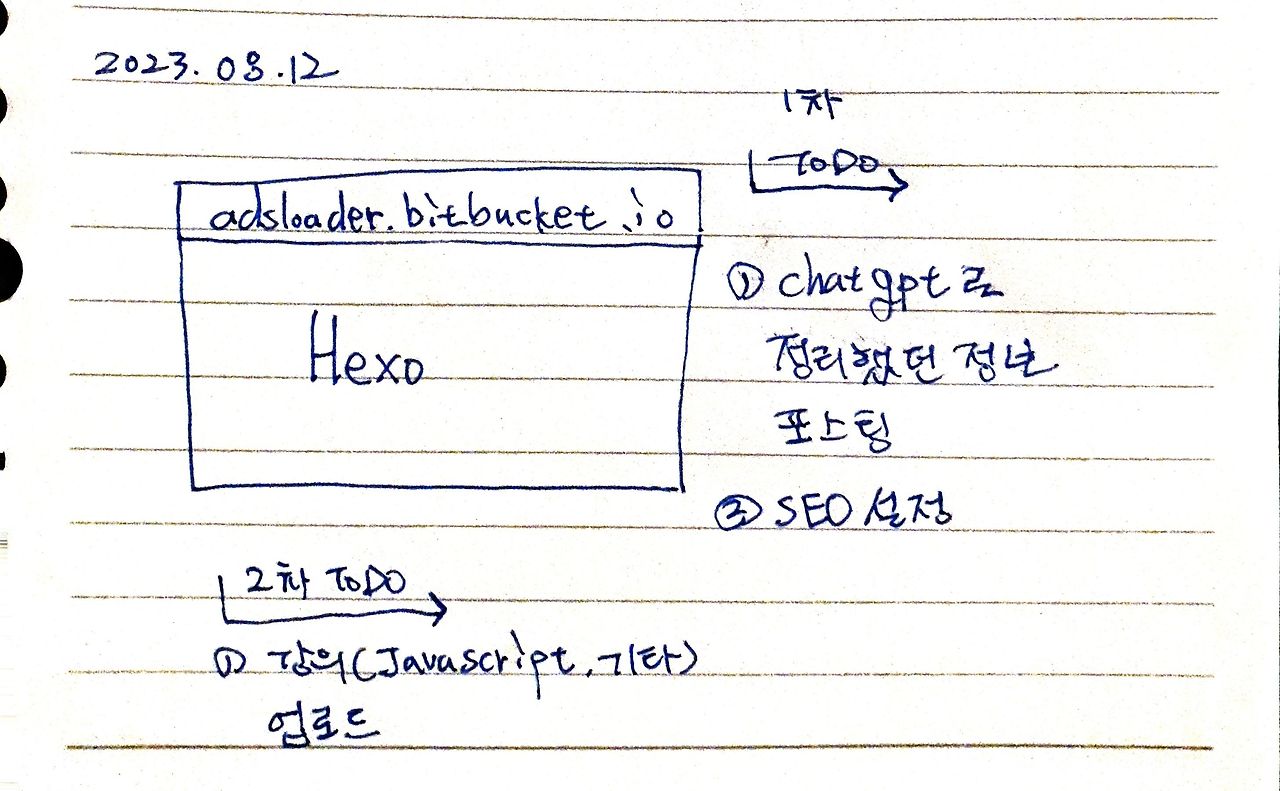 2023.08.12
adsloader.bitbucket.io
Hexo
1차
ToDO
① chatgpt로
정리했던 정보
포스팅
② SEO 설정
2차 ToDO
① 강의(Javascript, 기타)
업로드